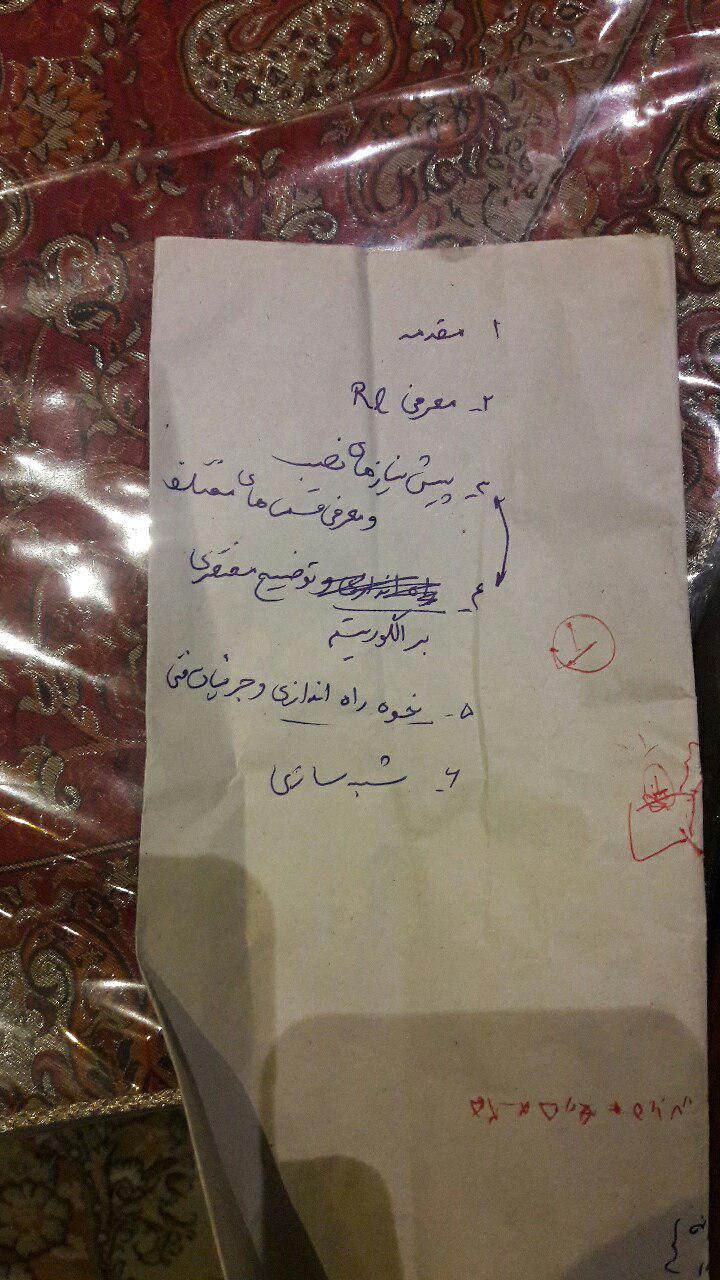 ۱ مقدمه
۲- معرفی Rl
۳- پیش نیازهای نصب
و معرفی قسمت های مختلف
۴- و توضیح مختصری
بر الگوریتم
۵- نحوه راه اندازی و جزئیات فنی
۶- شبیه سازی